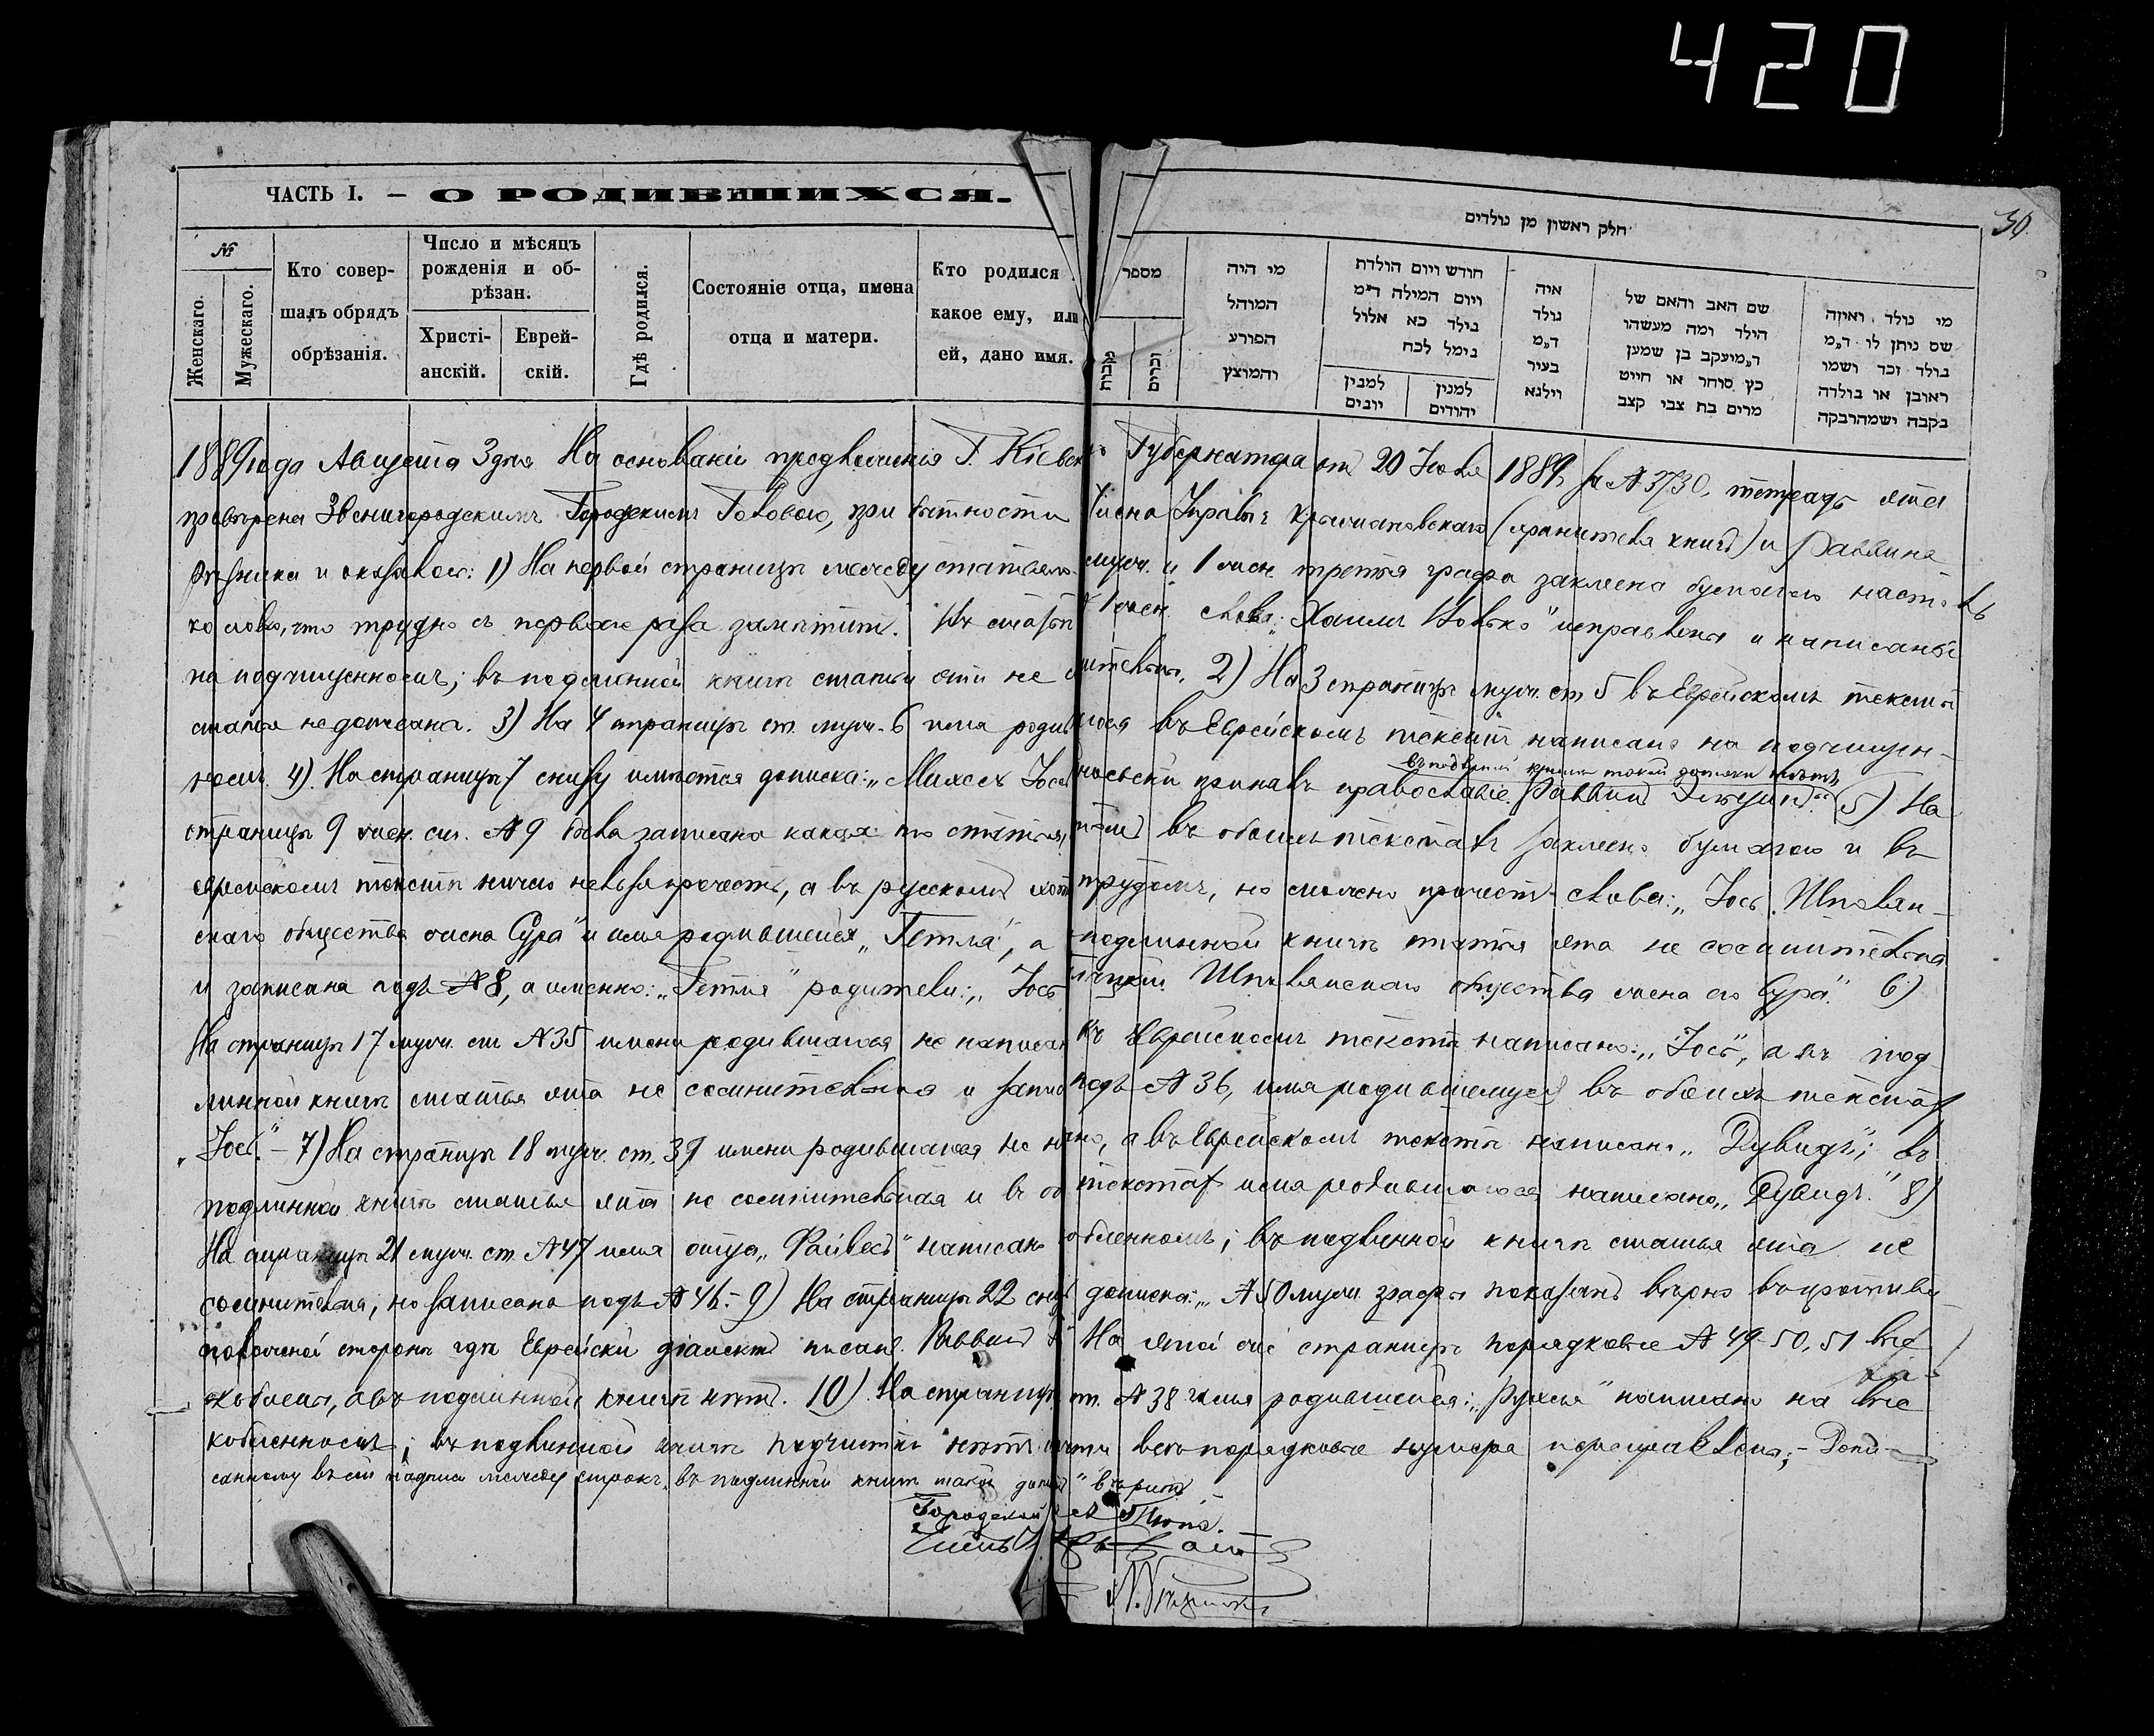 420
30
ЧАСТЬ I. – О РОДИВШИХСЯ.
חלק ראשון מן נולדים
№
Женскаго.
Мужескаго.
Кто совер-
шалъ обрядъ
обрѣзанія.
Число и мѣсяцъ
рожденія и об-
рѣзан.
Христі-
анскій.
Еврей-
скій.
Гдѣ родился.
Состояніе отца, имена
отца и матери.
Кто родился
какое ему, или
ей, дано имя.
מספר
נקבות
זכרים
מי היה
המוהל
הפורע
והמוצץ
חודש ויום הולדת
ויום המילה ד"מ
נולד כא אלול
נימל לכח
למנין
יונים
למנין
יהודים
איה
נולד
ד"מ
בעיר
וילנא
שם האב והאם של
הילד ומה מעשהו
ד"מ יעקב בן שמען
כץ סוחר או חייט
מרים בת צבי קצב
מי נולד ואיזה
שם ניתן לו ד"מ
נולד זכר ושמו
ראובן או נולדה
נקבה ושמה רבקה
1889 года Августа 3 дня На основаніи предложенія Г. Кіевск Губернатора от 20 Іюня 1889 за № 3730, тетрадь эта
провѣрена Звенигородскимъ Городскимъ Головою, при бытности Члена Управы (хранителя книгъ) и Раввина
Рѣзника и оказалось: 1) На первой страницѣ между статьями муж. и 1 жен. третья графа заклеена бумагою насто
ко ловко, что трудно съ перваго раза замѣтить. Въ статьѣ 1 жен. слова: „Хаимъ " исправлены и написаны
на подчищенномъ; въ подлинной книгѣ статьи эти не 2) На 3 страницѣ муж. ст 5 въ Еврейскомъ текстѣ
статья не дописана. 3) На 4 страницѣ ст. муж. 6 имя родив шагося въ Еврейскомъ текстѣ написано на подчищен-
номъ. 4). На страницѣ 7 снизу имѣется дописка: „ принялъ православіе. Раввинъ 5) На
въ подлинной книгѣ такой дописки нѣтъ
страницѣ 9 жен. ст. № 9 была записана какая-то статья, въ обоихъ текстахъ заклеено бумагою и въ
еврейскомъ текстѣ ничего нельзя прочесть, а въ русскомъ хотя трудомъ, но можно прочесть слова: „ Іось Шполян-
скаго общества жена Сура" и имя родившейся „Гетля", а подлинной книгѣ статья эта не сомнительна
и записана подъ № 8, а именно: „Гетля" родители: „ Іось Шполянскаго общества жена его Сура." 6)
На страницѣ 17 муж. ст № 35 имени родившагося не написан въ Еврейскомъ текстѣ написано: „Іось", а въ под
линной книгѣ статья эта не сомнительна и запис подъ № 36, имя родившемуся въ обоихъ текстах
„Іось." – 7) На страницѣ 18 муж. ст. 39 имени родившагося не на но, а въ Еврейскомъ текстѣ написано „Дувидъ"; въ
подлинной книгѣ статья эта не сомнительная и въ об текстах имя родившагося написано „Дувидъ." 8)
На страницѣ 21 муж. ст. № 47 имя отца „Файвель" написан ; въ подлинной книгѣ статья эта не
сомнительна, но записана подъ № 46. – 9) На страницѣ 22 дописка: „ № 50 муж. графы показанъ вѣрно въ противу
положной сторонѣ гдѣ Еврейскій діалектъ писан. Раввинъ На этой же страницѣ порядковые № 49 50, 51 вы
скоблены, а въ подлинной книгѣ нѣтъ. 10) На страницѣ ст. № 38 имя родившейся: „Рухля" написано на вы
скобленномъ; въ подлинной книгѣ подчистки нѣтъ порядковые нумера переправлены; – Допи
санному въ сей надписи между строкъ „въ подлинной книгѣ такой допис " вѣрить
Городской
Членъ